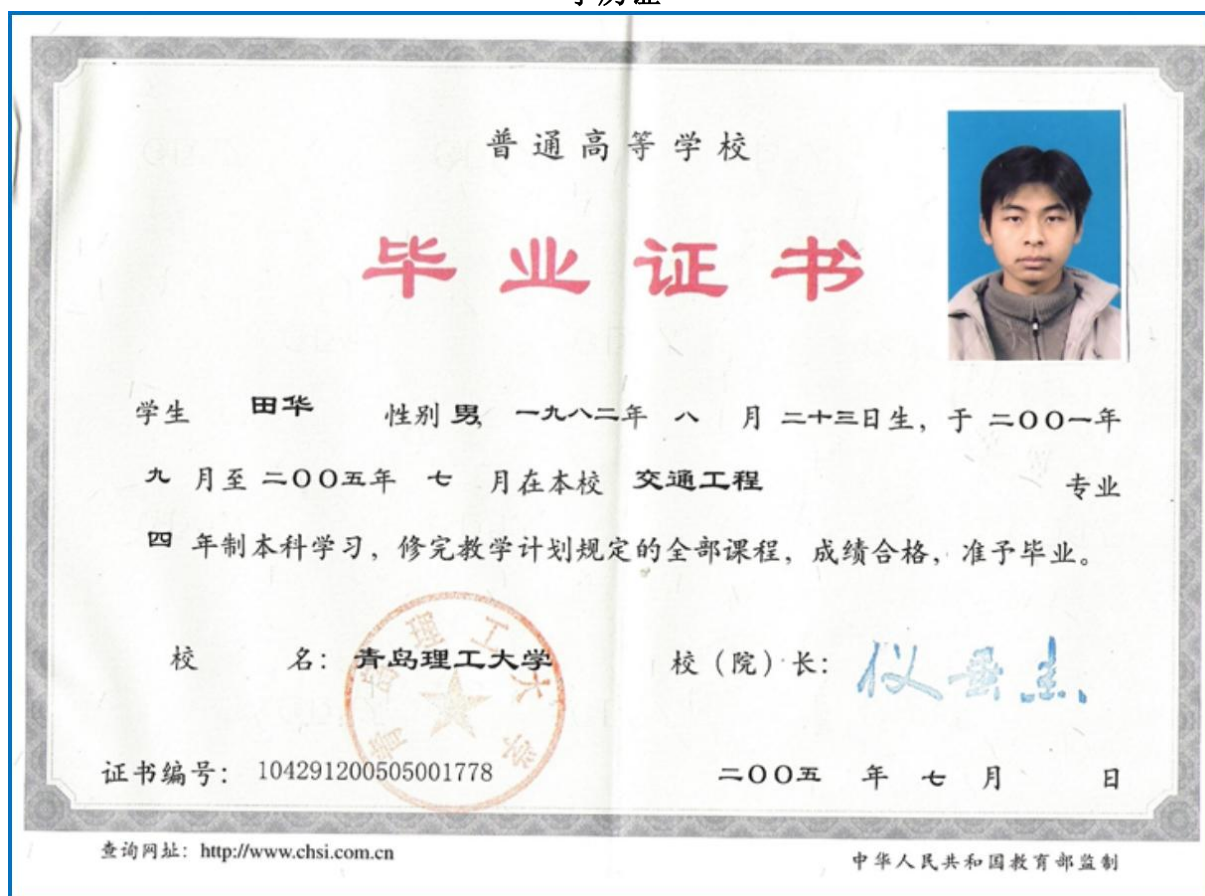 学历证
普通高等学校
毕业证书
学生 田华 性别 男, 一九八二年 八 月 二十三日生, 于 二〇〇一年
九 月至 二〇〇五年 七 月在本校 交通工程 专业
四 年制本科学习, 修完教学计划规定的全部课程, 成绩合格, 准予毕业。
校 名: 青岛理工大学 校(院)长: 仪垂杰
青岛理工大学
证书编号: 104291200505001778 二〇〇五 年 七 月 日
查询网址: http://www.chsi.com.cn 中华人民共和国教育部监制